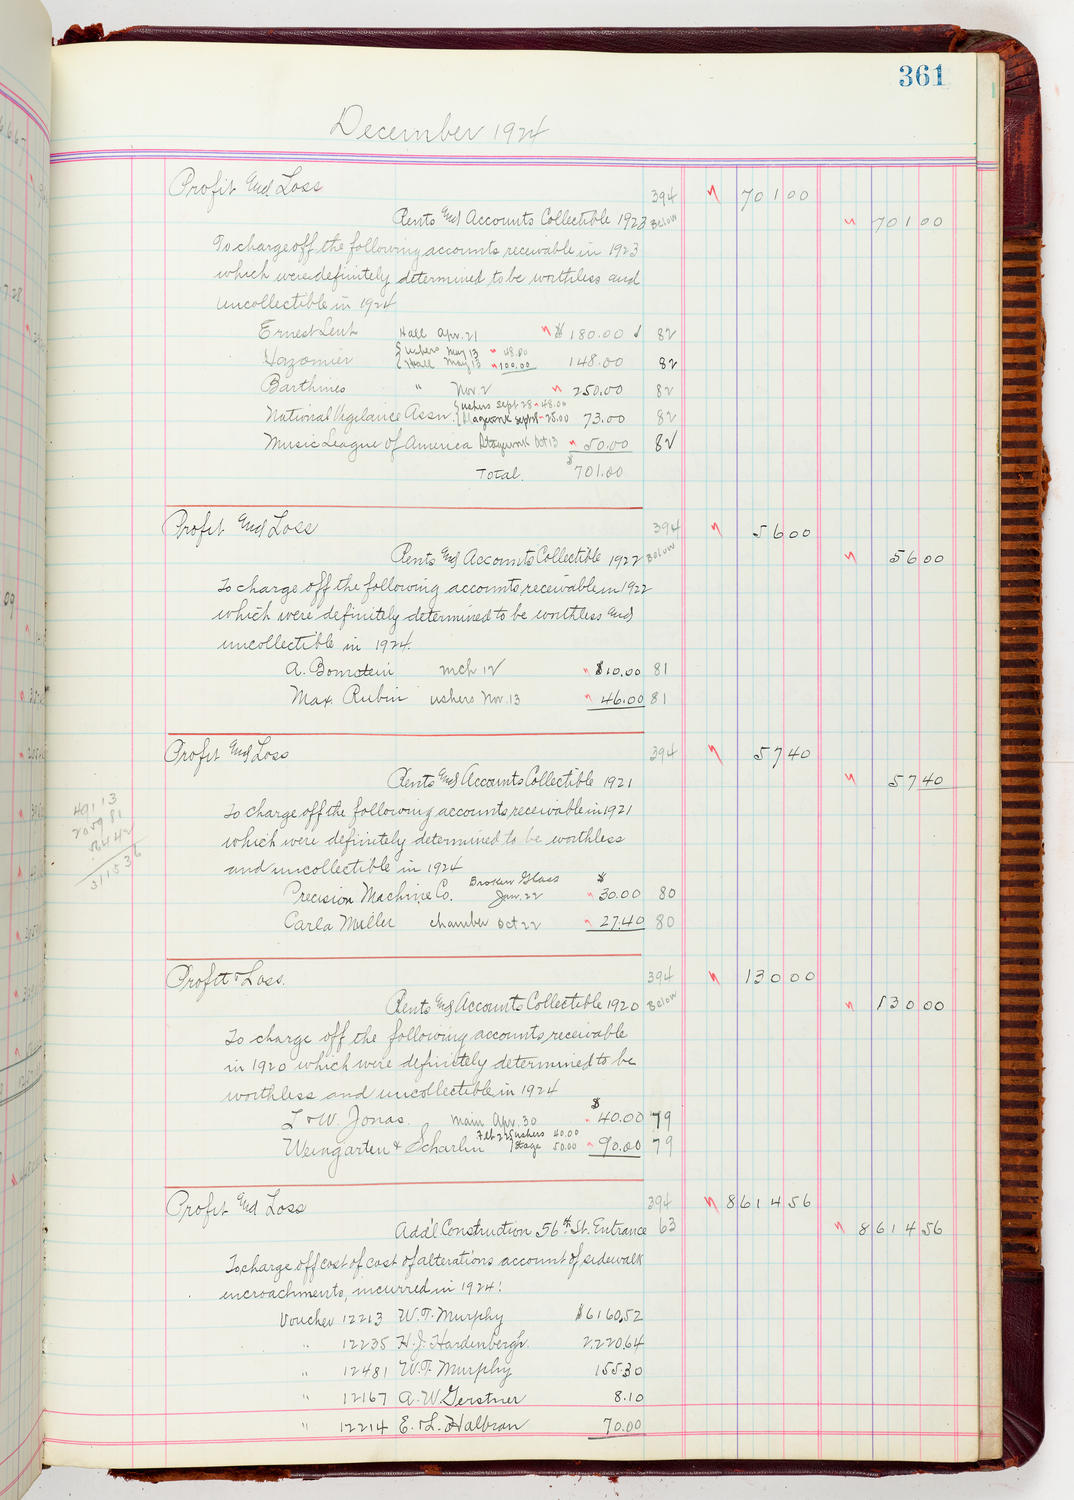 361
December 1924
Profit and Loss 394 70100
Rents and Accounts Collectible 1923 Below 70100
To charge off the following accounts receivable in 1923
which were definitely determined to be worthless and
uncollectible in 1924
Ernest Lent Hall Apr. 21 $180.00 82
Hazomier { ushers May 13 48.00
{ Hall May 13 100.00 148.00 82
Barthines " Nov. 2 250.00 82
{ ushers Sept 28 48.00
National Vigilance Assn. Sept 25.00 73.00 82
Music League of America Stagework Oct 13 50.00 82
Total $701.00
Profit and Loss 394 5600
Rents and Accounts Collectible 1922 Below 5600
To charge off the following accounts receivable in 1922
which were definitely determined to be worthless and
uncollectible in 1924.
A. Bornstein Mch 12 $10.00 81
Max Rubin ushers Nov. 13 46.00 81
Profit and Loss 394 5740
Rents and Accounts Collectible 1921 5740
To charge off the following accounts receivable in 1921
which were definitely determined to be worthless
and uncollectible in 1924
4911 3
2059 81
5642
311536
Broken Glass $
Precision Machine Co. Jan. 22 30.00 80
Carla Muller chamber Oct 22 27.40 80
Profit & Loss. 394 13000
Rents and Accounts Collectible 1920 Below 13000
To charge off the following accounts receivable
in 1920 which were definitely determined to be
worthless and uncollectible in 1924
L & W. Jonas. Main Apr. 30 $40.00 79
Feb 22 { ushers 40.00
Weingarten & Scharlin { Stage 50.00 90.00 79
Profit and Loss 394 861456
Add'l Construction 56th St. Entrance 63 861456
To charge off cost of cost of alterations account of sidewalk
encroachments, incurred in 1924:
Voucher 12213 W. T. Murphy $6160.52
" 12235 H. J. Hardenbergh. 2220.64
" 12481 W. T. Murphy 155.30
" 12167 A. W. Gerstner 8.10
" 12214 E. & L. Halbran 70.00